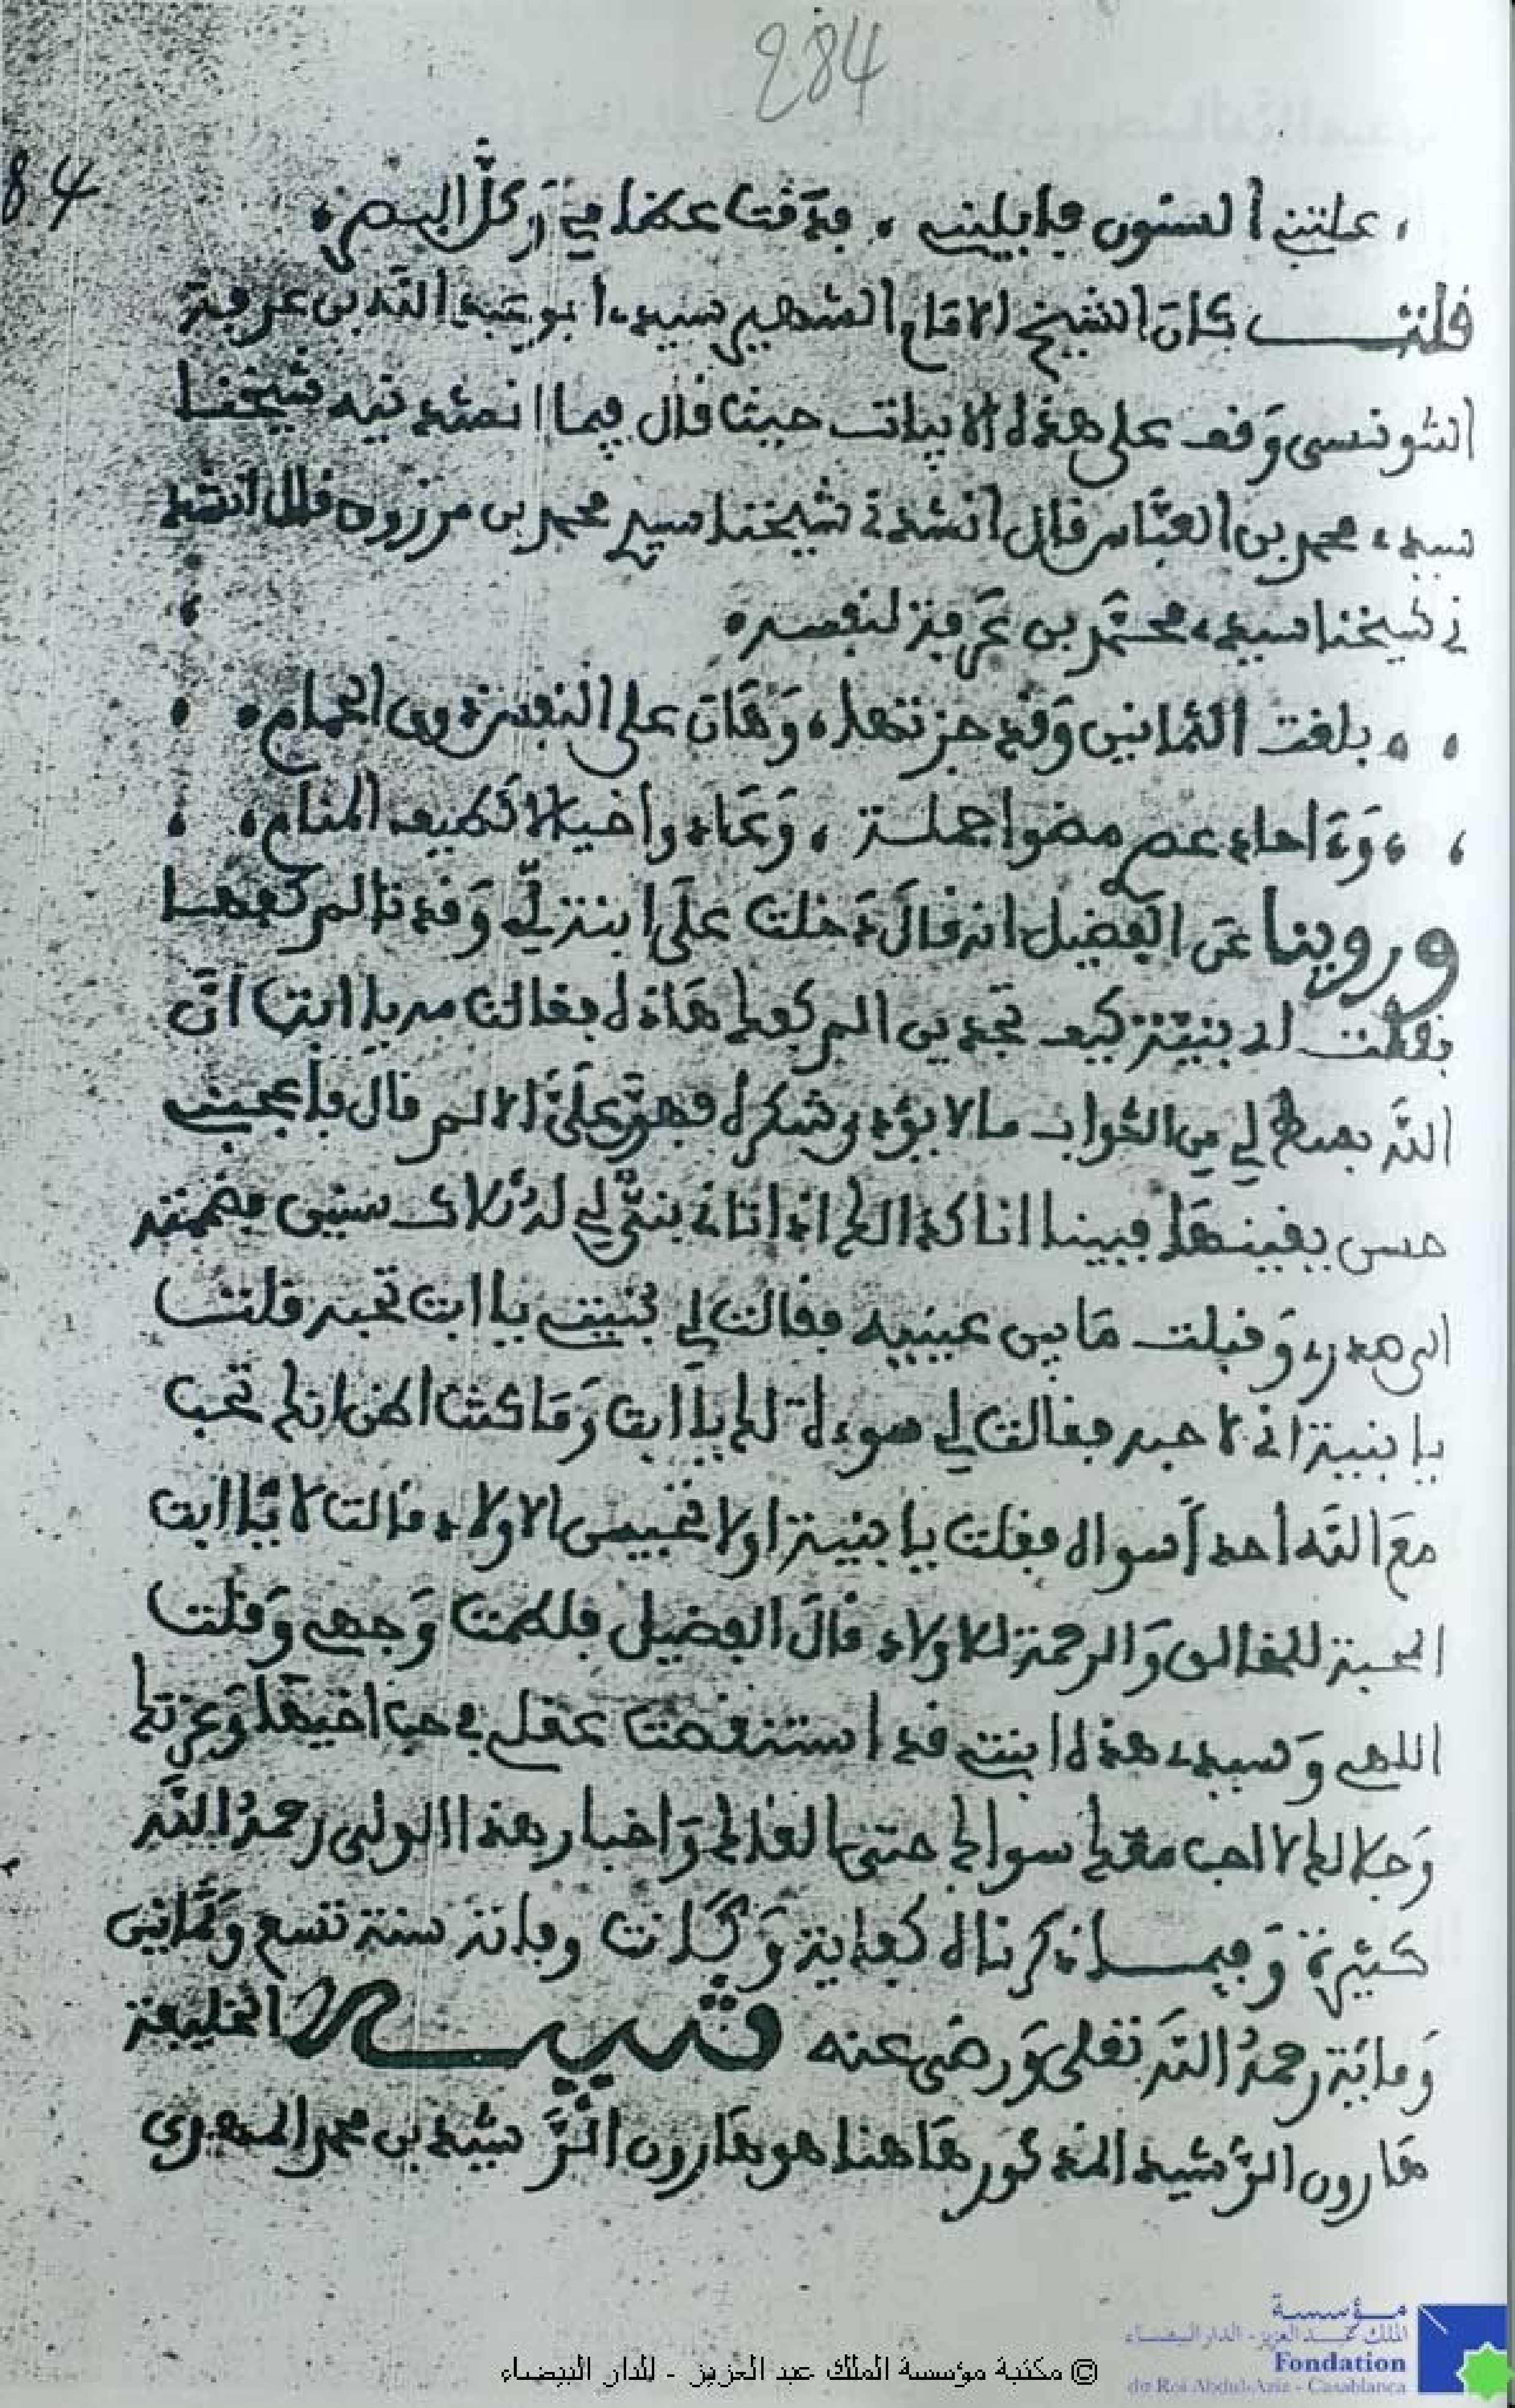 284
84
علتني السنون فابلينني ، فدقت عظامي وكل البصر ،
قلت كان الشيخ الامام الشهير سيدي ابو عبد الله بن عرفة
التونسي وقف على هذه الابيات حيث قال فيما انشدنيه شيخنا
سيدي محمد بن العباس قال انشدني شيخنا سيدي محمد بن مرزوق قال انشد
ني شيخنا سيدي محمد بن عرفة لنفسه
بلغت الثمانين وقد جزتها ، وهان على النفس ورود الحمام
، وءاحاد عصر مضوا جملة ، وعادوا خيالا كطيف المنام ،
وروينا عن الفضيل انه قال دخلت على ابنة لي وقد تالم كفها
فقلت له بنية كيف تجدين الم كفك هاذه فقالت به يا ابت ان
الله بسط لي من الثواب ما لا يؤدى شكره فهون علي الالم قال فاعجبني
حسن يقينها فبينا انا كذالك اذ اتاني بني لي له ثلاث سنين فضممته
الى صدري وقبلت ما بين عينيه فقالت لي بنيتي يا ابت تحبه قلت
يا بنية اني لاحبه فقالت لي سوءة لك يا ابت وما كنت اظن انك تحب
مع الله احدا سواه فقلت يا بنية اولا تحبين الاولاد قالت لا يا ابت
المحبة للخالق والرحمة للاولاد قال الفضيل فلطمت وجهي وقلت
اللهي وسيدي هذه ابنتي قد استنقصت عقلي في حب اخيها وعزتك
وجلالك لا احب معك سواك حتى القاك واخبار هذا الولي رحمه الله
كثيرة وفيما ذكرناه كفاية وكانت وفاته سنة تسع وثمانين
ومائة رحمه الله تعلى ورضي عنه تنبيه الخليفة
هارون الرشيد المذكور هاهنا هو هارون الرشيد بن محمد المهدي
© مكتبة مؤسسة الملك عبد العزيز - الدار البيضاء
مؤسسة
الملك عبد العزيز - الدار البيضاء
Fondation
du Roi Abdul-Aziz - Casablanca